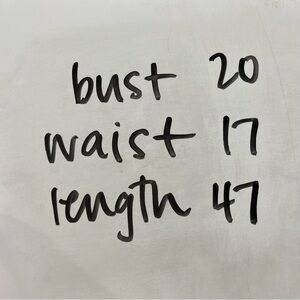 bust 20
waist 17
length 47